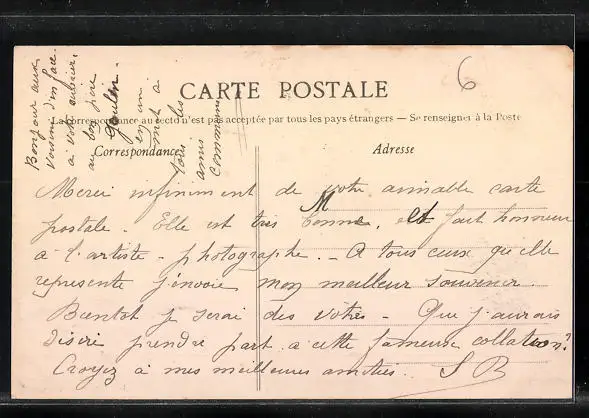 6
CARTE POSTALE
La correspondance au recto n'est pas acceptée par tous les pays étrangers — Se renseigner à la Poste
Correspondance
Adresse
Bonjour aux
voisins d'en face.
à votre
au bon père
en un
mot à
tous les
amis
communs
Merci infiniment de votre aimable carte
postale. Elle est très bonne, et fait honneur
à l'artiste - photographe. - A tous ceux qu'elle
représente j'envoie mon meilleur souvenir.
Bientôt je serai des vôtres - Que j'aurais
désiré prendre part à cette fameuse collation!
Croyez à mes meilleures amitiés. S B